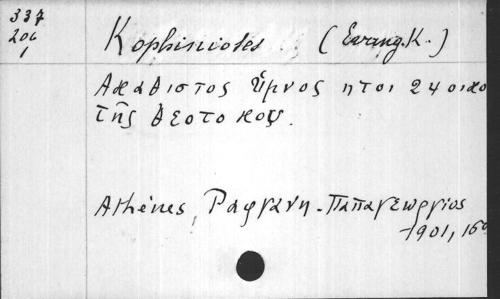 337
206
1
Kophiniotes (Evang. K.)
Ακάθιστος ὕμνος ητοι 24 οικο
τῆς θεοτοκου.
Athènes, Ραφτάνη - Παπαγεωργίος
1901, 16°